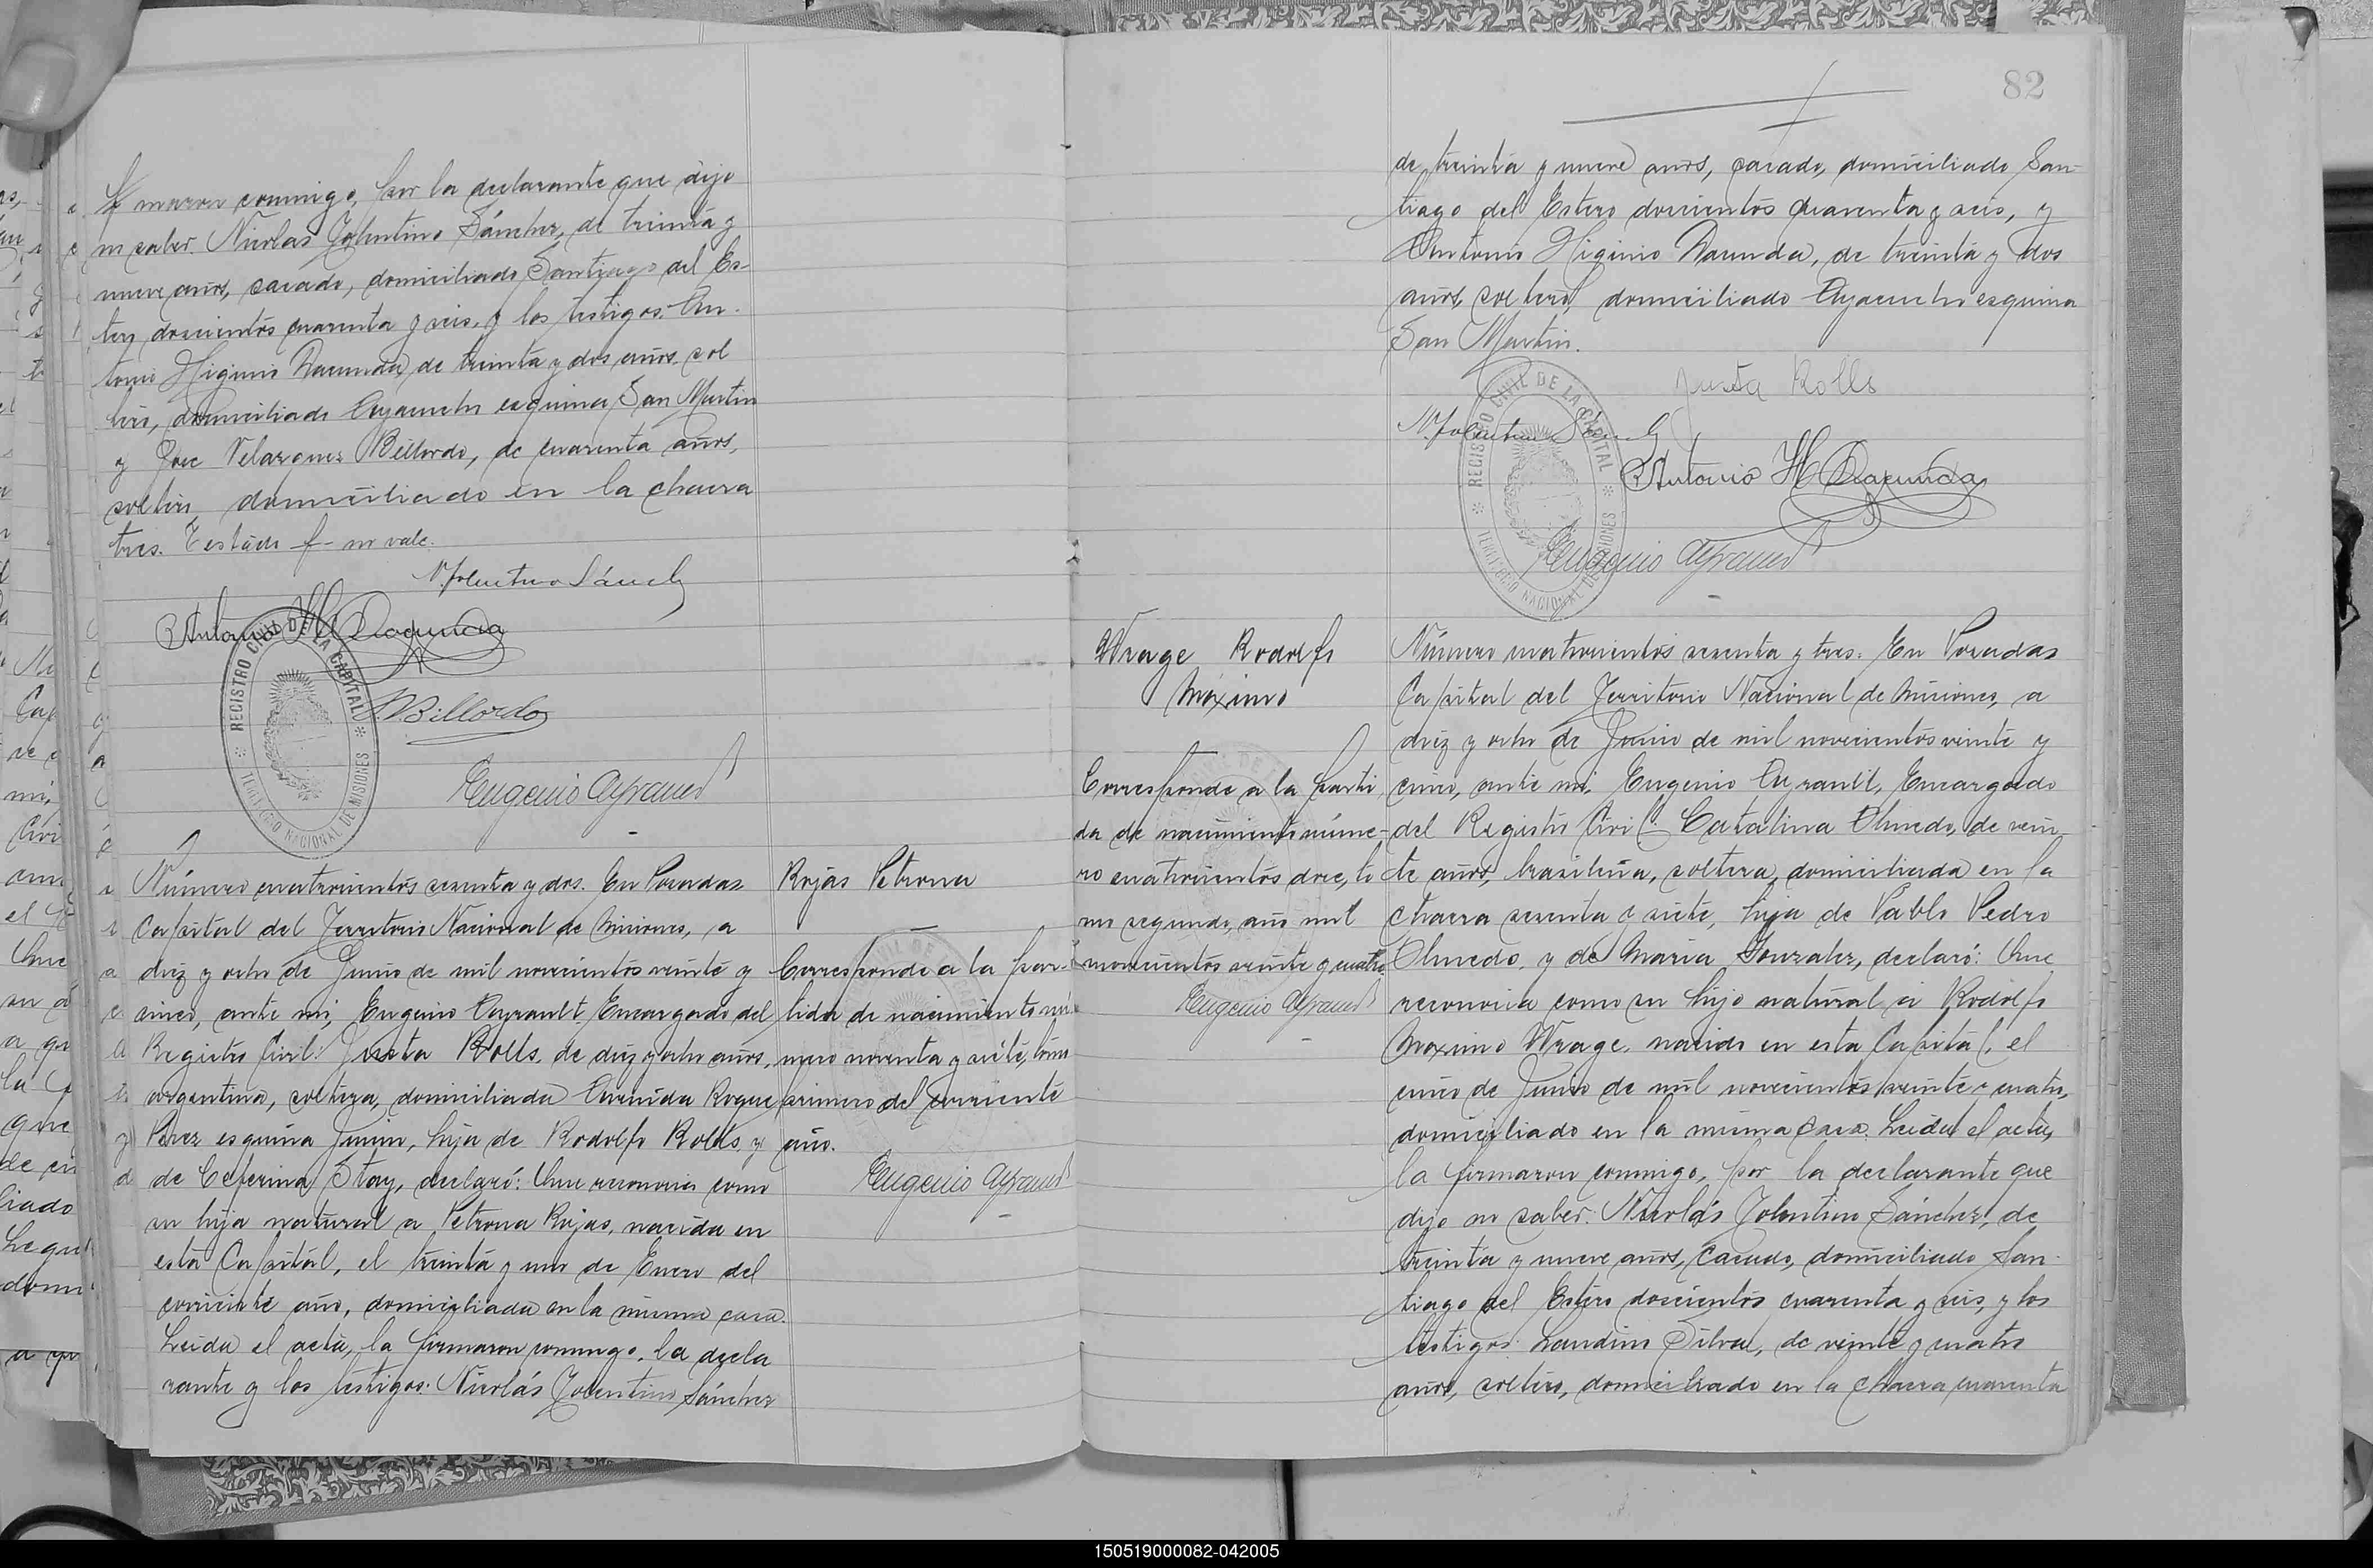 f maron conmigo, por la declarante que dijo
no saber. Nicolas Tolentino Sánchez, de treinta y
nueve años, casado, domiciliado Santiago del Es-
tero doscientos cuarenta y seis, y los testigos: An-
tonio Higinio Dacunda, de treinta y dos años, sol
tero, domiciliado Ayacucho esquina San Martin
y José Velazquez Billordo, de cuarenta años,
soltero, domiciliado en la chacra
tres. Testado f- no vale.
N. Tolentino Sánchez
Antonio H. Dacunda
Billordo
REGISTRO CIVIL DE LA CAPITAL
TERRITORIO NACIONAL DE MISIONES
Eugenio Ayrault
Número cuatrocientos sesenta y dos. En Posadas
Capital del Territorio Nacional de Misiones, a
diez y ocho de Junio de mil novecientos veinte y
cinco, ante mi, Eugenio Ayrault, Encargado del
Registro Civil: Justa Rolls, de diez y ocho años,
argentina, soltera, domiciliada Avenida Roque
Perez esquina Junin, hija de Rodolfo Rolls, y
de Ceferina Stay, declaró: Que reconocia como
su hija natural a Petrona Rojas, nacida en
esta Capital, el treinta y uno de Enero del
corriente año, domiciliada en la misma casa.
Leida el acta, la firmaron conmigo, la decla
rante y los testigos: Nicolás Tolentino Sánchez
Rojas Petrona
Corresponde a la par-
tida de nacimiento nú-
mero noventa y siete, tomo
primero del corriente
año.
Eugenio Ayrault
82
de treinta y nueve años, casado, domiciliado San-
tiago del Estero doscientos cuarenta y seis, y
Antonio Higinio Dacunda, de treinta y dos
años, soltero, domiciliado Ayacucho esquina
San Martin.
Justa Rolls
N. Tolentino Sánchez
Antonio H. Dacunda
REGISTRO CIVIL DE LA CAPITAL
TERRITORIO NACIONAL DE MISIONES
Eugenio Ayrault
Wrage Rodolfo
Máximo
Corresponde a la parti
da de nacimiento núme-
ro cuatrocientos doce, to
mo segundo, año mil
novecientos veinte y cuatro.
Eugenio Ayrault
Número cuatrocientos sesenta y tres: En Posadas
Capital del Territorio Nacional de Misiones, a
diez y ocho de Junio de mil novecientos veinte y
cinco, ante mi, Eugenio Ayrault, Encargado
del Registro Civil: Catalina Olmedo, de vein
te años, brasileña, soltera, domiciliada en la
chacra sesenta y siete, hija de Pablo Pedro
Olmedo, y de Maria Gonzalez, declaró: Que
reconocia como su hijo natural a Rodolfo
Maximo Wrage, nacido en esta Capital, el
cinco de Junio de mil novecientos veinte y cuatro,
domiciliado en la misma casa. Leida el acta,
la firmaron conmigo, por la declarante que
dijo no saber. Nicolás Tolentino Sánchez, de
treinta y nueve años, casado, domiciliado San-
tiago del Estero doscientos cuarenta y seis, y los
testigos: Landino Silva, de veinte y cuatro
años, soltero, domiciliado en la chacra cuarenta
150519000082-042005